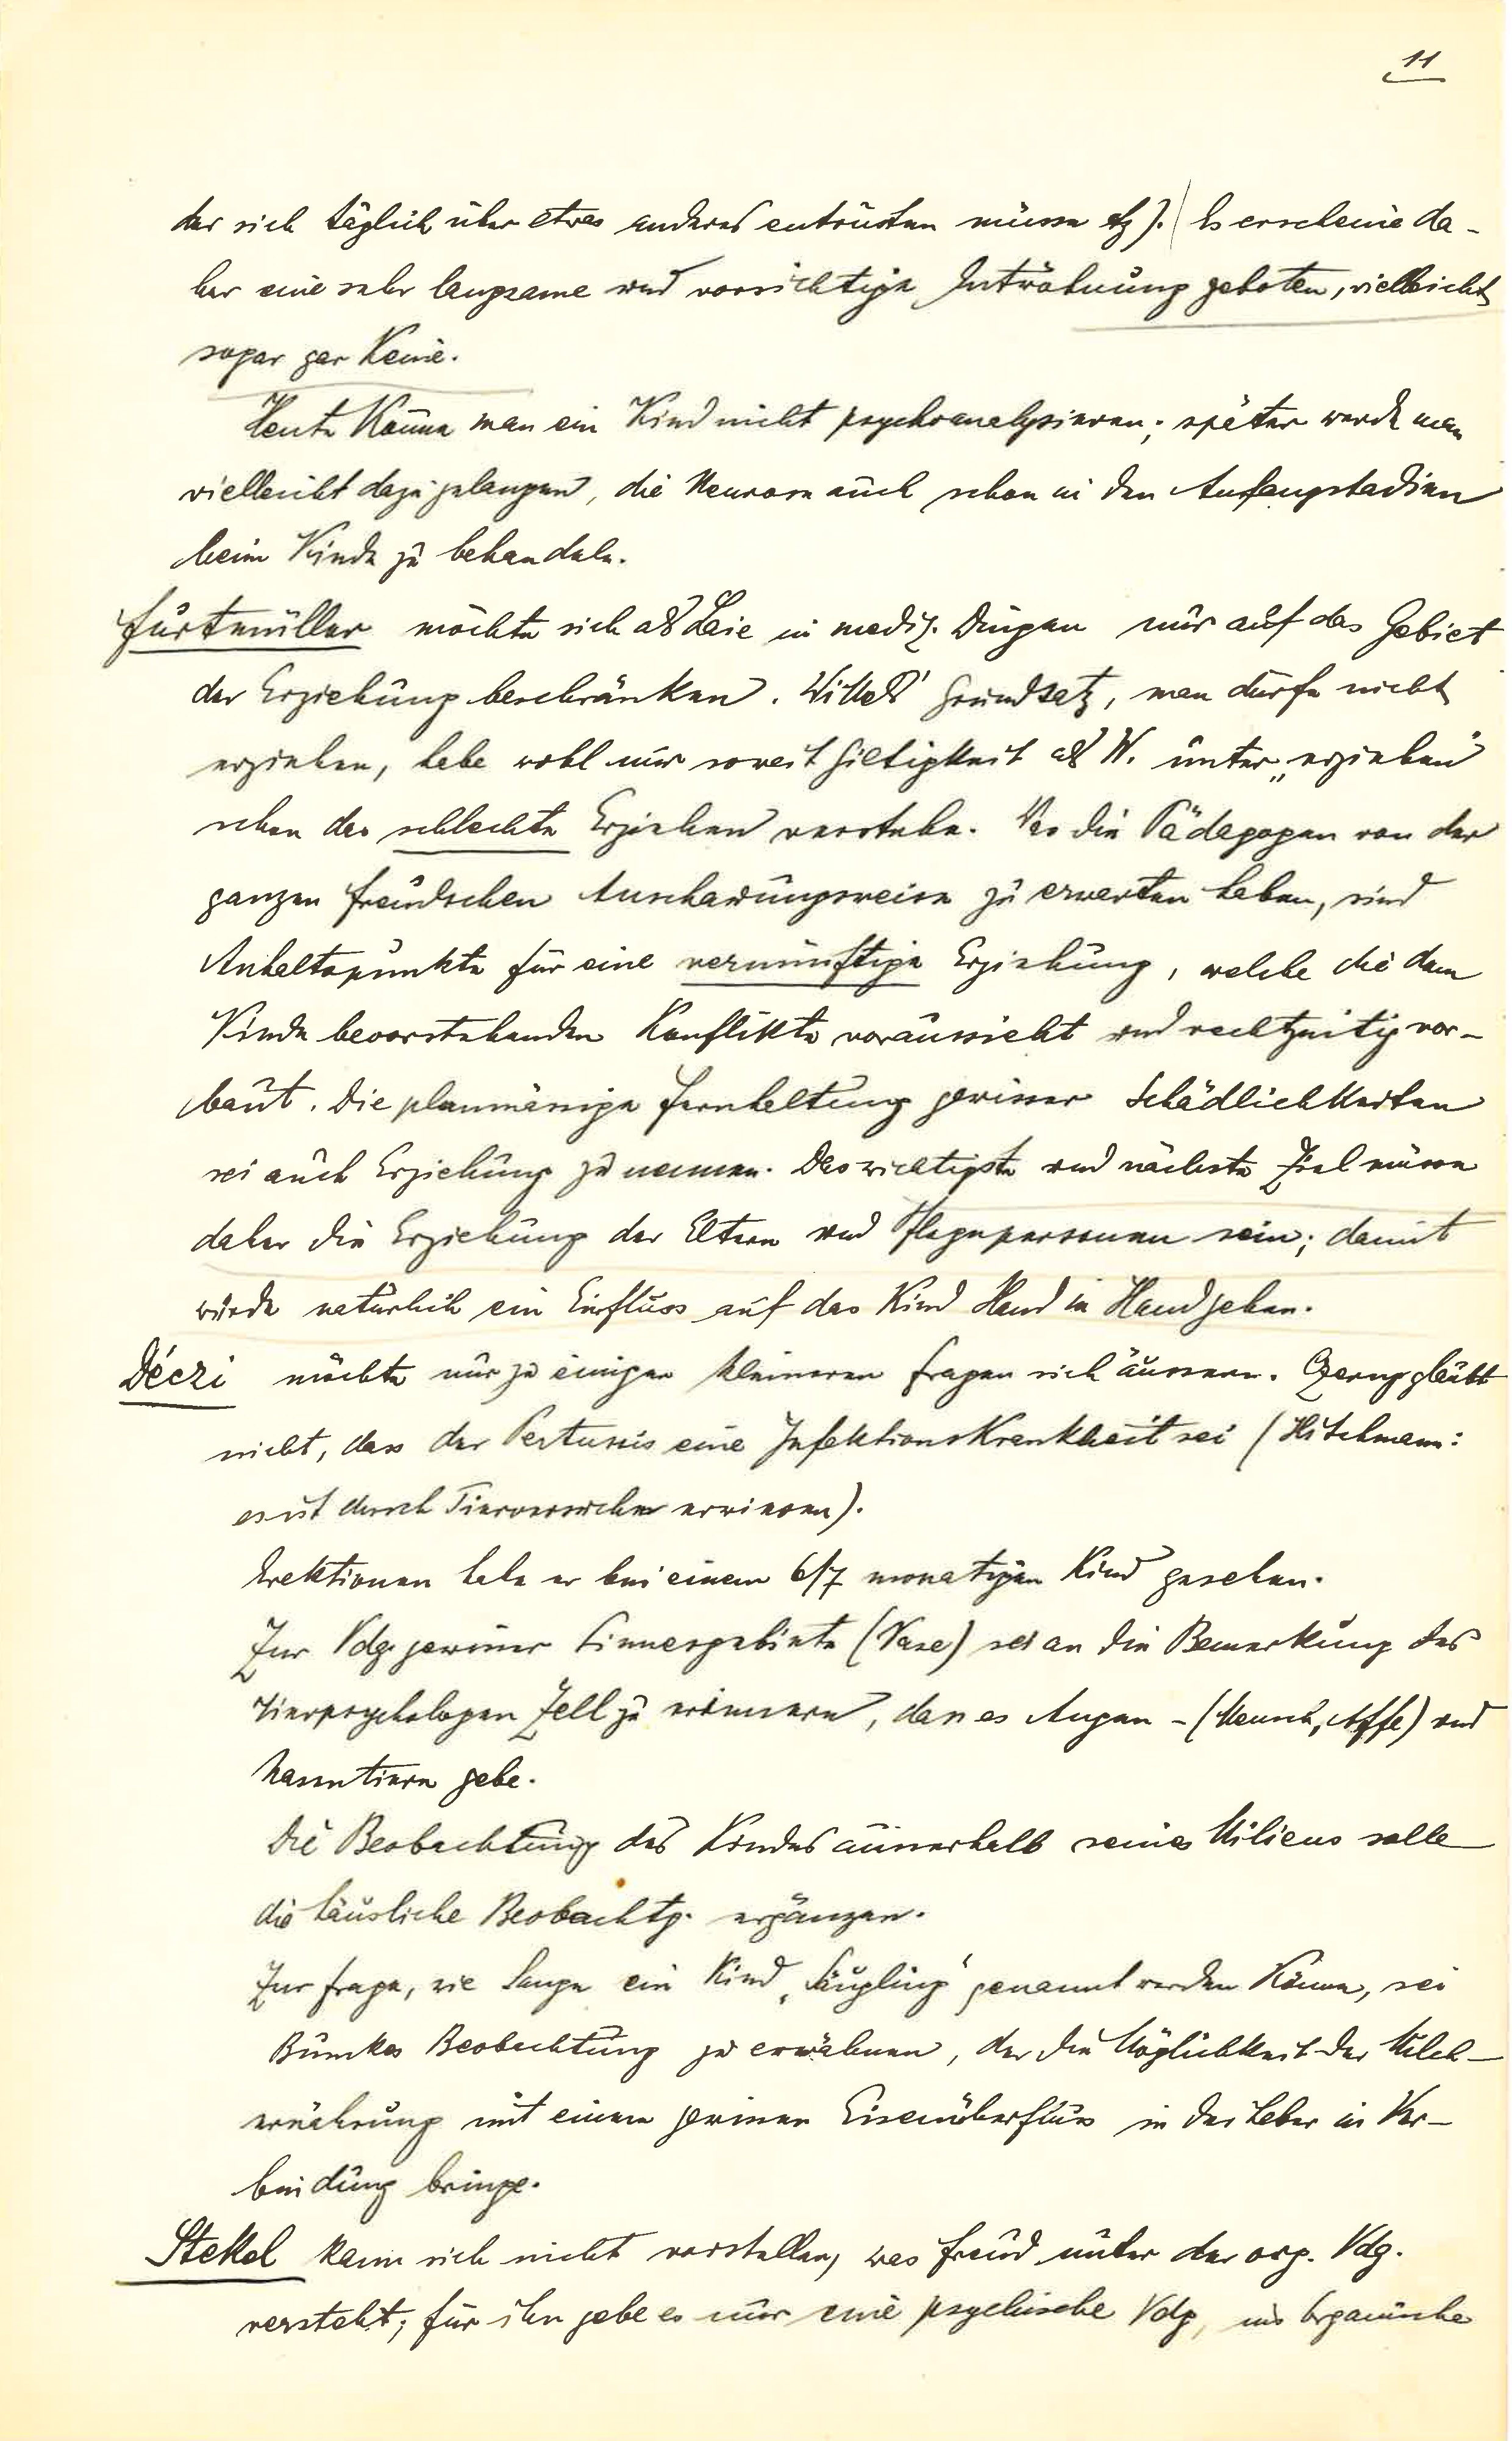 11
der sich täglich über etwas anderes entrüsten müsse etz). Es erscheine da-
her eine sehr langsame und vorsichtige Entwöhnung geboten, vielleicht
sogar gar keine.
Heute könne man ein Kind nicht psychoanalysieren; später werde man
vielleicht dazu gelangen, die Neurose auch schon in den Anfangstadien
beim Kinde zu behandeln.
Furtmüller möchte sich als Laie in mediz. Dingen nur auf das Gebiet
der Erziehung beschränken. Wittels' Grundsatz, man dürfe nicht
erziehen, habe wohl nur soweit Giltigkeit als W. unter „erziehen"
schon das schlechte Erziehen verstehe. Was die Pädagogen von der
ganzen Freudschen Anschauungsweise zu erwarten haben, sind
Anhaltspunkte für eine vernünftige Erziehung, welche die dem
Kinde bevorstehenden Konflikte voraussieht und rechtzeitig vor-
baut. Die planmässige Fernhaltung gewisser Schädlichkeiten
sei auch Erziehung zu nennen. Das wichtigste und nächste Ziel müsse
daher die Erziehung der Eltern und Pflegepersonen sein; damit
würde natürlich ein Einfluss auf das Kind Hand in Hand gehen.
Déczi möchte nur zu einigen kleineren Fragen sich äussern. Czerny glaubt
nicht, dass der Pertussis eine Infektionskrankheit sei (Hitschmann:
es ist durch Tierversuche erwiesen).
Erektionen habe er bei einem 6/7 monatigen Kind gesehen.
Zur Vdg gewisser Sinnesgebiete (Nase) sei an die Bemerkung des
Tierpsychologen Zell zu erinnern, dass es Augen-(Mensch, Affe) und
Nasentiere gebe.
Die Beobachtung des Kindes ausserhalb seines Milieus solle
die häusliche Beobachtg. ergänzen.
Zur Frage, wie lange ein Kind „Säugling" genannt werden könne, sei
Bunkes Beobachtung zu erwähnen, der die Möglichkeit der Milch-
ernährung mit einem gewissen Eisenüberfluss in der Leber in Ver-
bindung bringe.
Stekel kann sich nicht vorstellen, was Freud unter der org. Vdg.
versteht; für ihn gebe es nur eine psychische Vdg, ins Organische